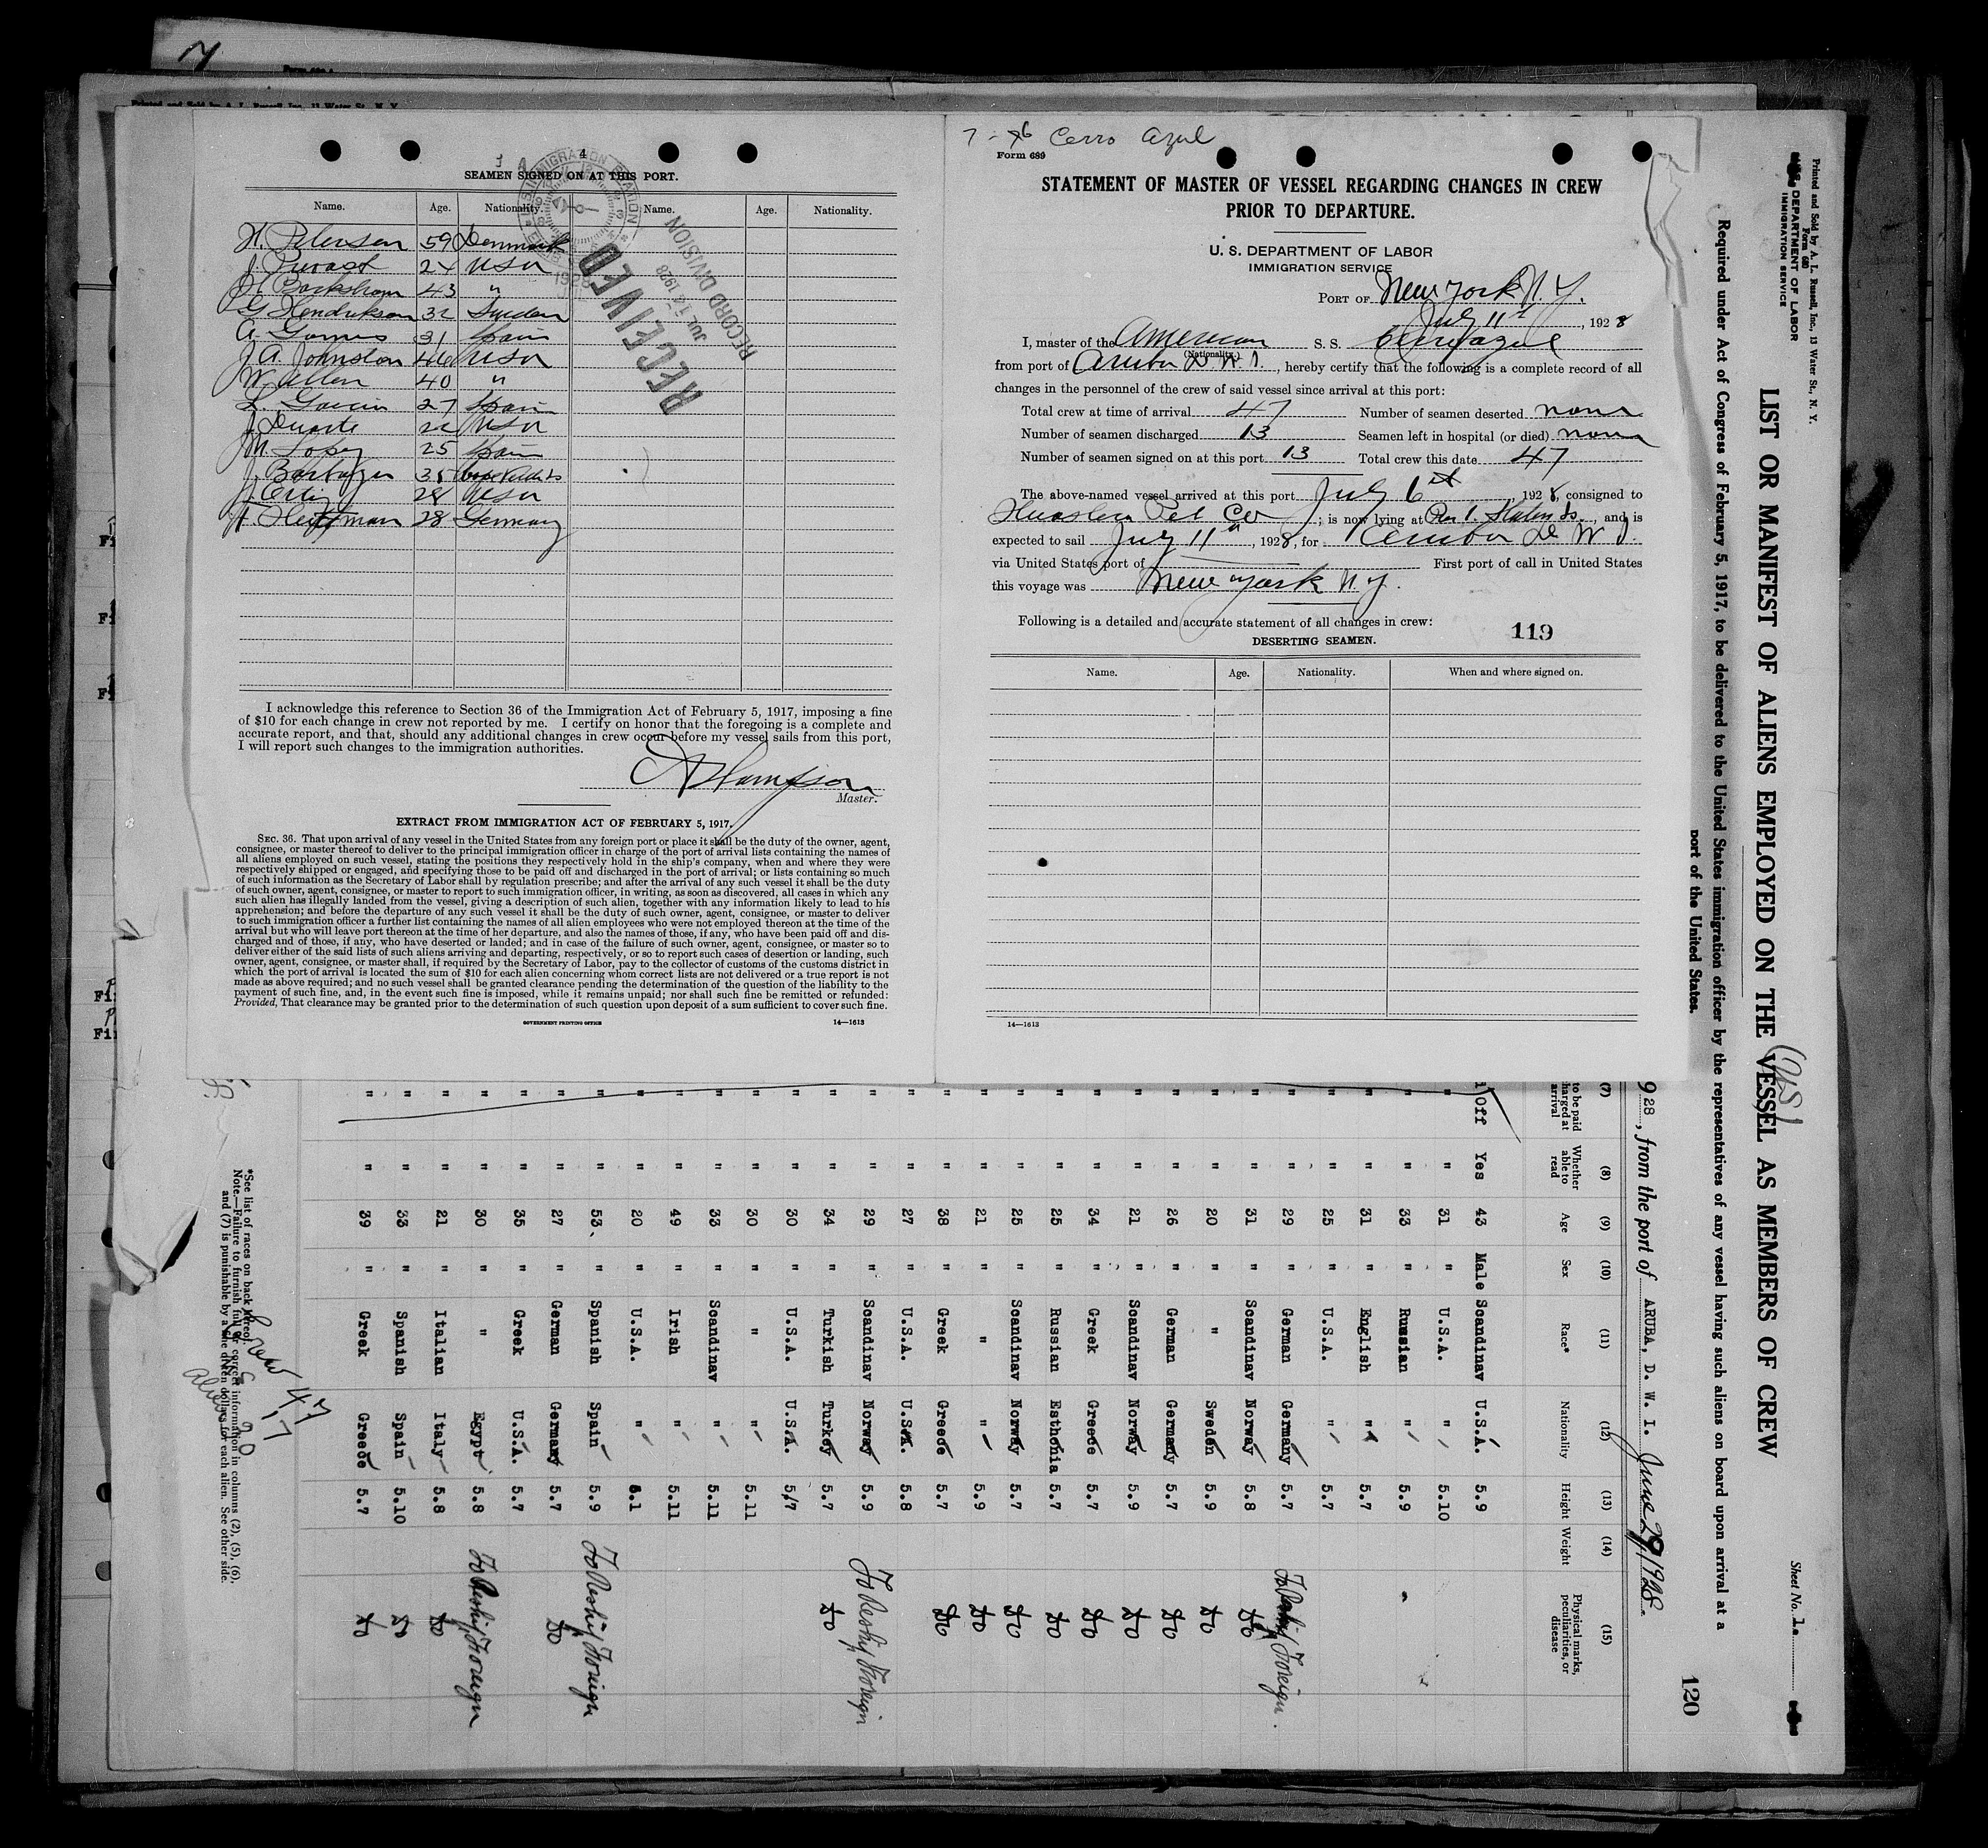 7
4
SEAMEN SIGNED ON AT THIS PORT.
Name. Age. Nationality. Name. Age. Nationality.
H. Petersen 59 Denmark
J. 24 USA
H. 43 "
G. Hendrikson 32 Sweden
A. Gomes 31 Spain
J. A. Johnston 46 USA
W. Allen 40 "
L. Garcia 27 Spain
J. Duarte 22 USA
M. Lopez 25 Spain
J. 35
J. Ortiz 28 USA
F. 28 Germany
U.S. IMMIGRATION STATION
1928
RECEIVED
JUL 12 1928
RECORD DIVISION
I acknowledge this reference to Section 36 of the Immigration Act of February 5, 1917, imposing a fine
of $10 for each change in crew not reported by me. I certify on honor that the foregoing is a complete and
accurate report, and that, should any additional changes in crew occur before my vessel sails from this port,
I will report such changes to the immigration authorities.
Master.
EXTRACT FROM IMMIGRATION ACT OF FEBRUARY 5, 1917.
SEC. 36. That upon arrival of any vessel in the United States from any foreign port or place it shall be the duty of the owner, agent,
consignee, or master thereof to deliver to the principal immigration officer in charge of the port of arrival lists containing the names of
all aliens employed on such vessel, stating the positions they respectively hold in the ship's company, when and where they were
respectively shipped or engaged, and specifying those to be paid off and discharged in the port of arrival; or lists containing so much
of such information as the Secretary of Labor shall by regulation prescribe; and after the arrival of any such vessel it shall be the duty
of such owner, agent, consignee, or master to report to such immigration officer, in writing, as soon as discovered, all cases in which any
such alien has illegally landed from the vessel, giving a description of such alien, together with any information likely to lead to his
apprehension; and before the departure of any such vessel it shall be the duty of such owner, agent, consignee, or master to deliver
to such immigration officer a further list containing the names of all alien employees who were not employed thereon at the time of the
arrival but who will leave port thereon at the time of her departure, and also the names of those, if any, who have been paid off and dis-
charged and of those, if any, who have deserted or landed; and in case of the failure of such owner, agent, consignee, or master so to
deliver either of the said lists of such aliens arriving and departing, respectively, or so to report such cases of desertion or landing, such
owner, agent, consignee, or master shall, if required by the Secretary of Labor, pay to the collector of customs of the customs district in
which the port of arrival is located the sum of $10 for each alien concerning whom correct lists are not delivered or a true report is not
made as above required; and no such vessel shall be granted clearance pending the determination of the question of the liability to the
payment of such fine, and, in the event such fine is imposed, while it remains unpaid; nor shall such fine be remitted or refunded:
Provided, That clearance may be granted prior to the determination of such question upon deposit of a sum sufficient to cover such fine.
GOVERNMENT PRINTING OFFICE 14—1613
7-6 Cerro Azul
Form 689
STATEMENT OF MASTER OF VESSEL REGARDING CHANGES IN CREW
PRIOR TO DEPARTURE.
U. S. DEPARTMENT OF LABOR
IMMIGRATION SERVICE
PORT OF New York N.Y.
July 11th, 1928
I, master of the American S. S. Cerro Azul
(Nationality.)
from port of Aruba D W I, hereby certify that the following is a complete record of all
changes in the personnel of the crew of said vessel since arrival at this port:
Total crew at time of arrival 47 Number of seamen deserted none
Number of seamen discharged 13 Seamen left in hospital (or died) none
Number of seamen signed on at this port 13 Total crew this date 47
The above-named vessel arrived at this port July 6th, 1928, consigned to
Huasteca Pet Co; is now lying at Pier 1. Staten Is., and is
expected to sail July 11th, 1928, for Aruba D W I.
via United States port of First port of call in United States
this voyage was New York N.Y.
Following is a detailed and accurate statement of all changes in crew:
119
DESERTING SEAMEN.
Name. Age. Nationality. When and where signed on.
14—1613
Printed and Sold by A. L. Russell, Inc., 13 Water St., N. Y.
Form 680
U. S. DEPARTMENT OF LABOR
IMMIGRATION SERVICE
Sheet No. 1.
LIST OR MANIFEST OF ALIENS EMPLOYED ON THE VESSEL AS MEMBERS OF CREW
Required under Act of Congress of February 5, 1917, to be delivered to the United States immigration officer by the representatives of any vessel having such aliens on board upon arrival at a
port of the United States.
120
928, from the port of ARUBA, D. W. I. June 29, 1928.
(7) (8) (9) (10) (11) (12) (13) (14) (15)
to be paid
charged at
arrival
Whether able to read Age Sex Race* Nationality Height Weight Physical marks, peculiarities, or disease
Off Yes 43 Male Scandinav U.S.A. 5.9
" " 31 " U.S.A. " 5.10
" " 33 " Russian " 5.9
" " 31 " English " 5.7
" " 25 " U.S.A. " 5.7
" " 29 " German Germany 5.7 To Reship Foreign.
" " 31 " Scandinav Norway 5.8 do
" " 20 " " Sweden 5.9 do
" " 26 " German Germany 5.7 do
" " 21 " Scandinav Norway 5.9 do
" " 34 " Greek Greece 5.7 do
" " 25 " Russian Esthonia 5.7 do
" " 25 " Scandinav Norway 5.7 do
" " 21 " " " 5.9 do
" " 38 " Greek Greece 5.7 do
" " 27 " U.S.A. U.S.A. 5.8
" " 29 " Scandinav Norway 5.9 To Reship Foreign
" " 34 " Turkish Turkey 5.7 do
" " 30 " U.S.A. U.S.A. 5.7
" " 30 " " " 5.11
" " 33 " Scandinav " 5.11
" " 49 " Irish " 5.11
" " 20 " U.S.A. " 6.1
" " 53 " Spanish Spain 5.9 To Reship Foreign
" " 27 " German Germany 5.7 do
" " 35 " Greek U.S.A. 5.7
" " 30 " " Egypt 5.8 To Reship Foreign
" " 21 " Italian Italy 5.8 do
" " 33 " Spanish Spain 5.10 do
" " 39 " Greek Greece 5.7 do
*See list of races on back hereof.
Note.—Failure to furnish full or correct information in columns (2), (5), (6),
and (7) is punishable by a fine of ten dollars for each alien. See other side.
Crew 47